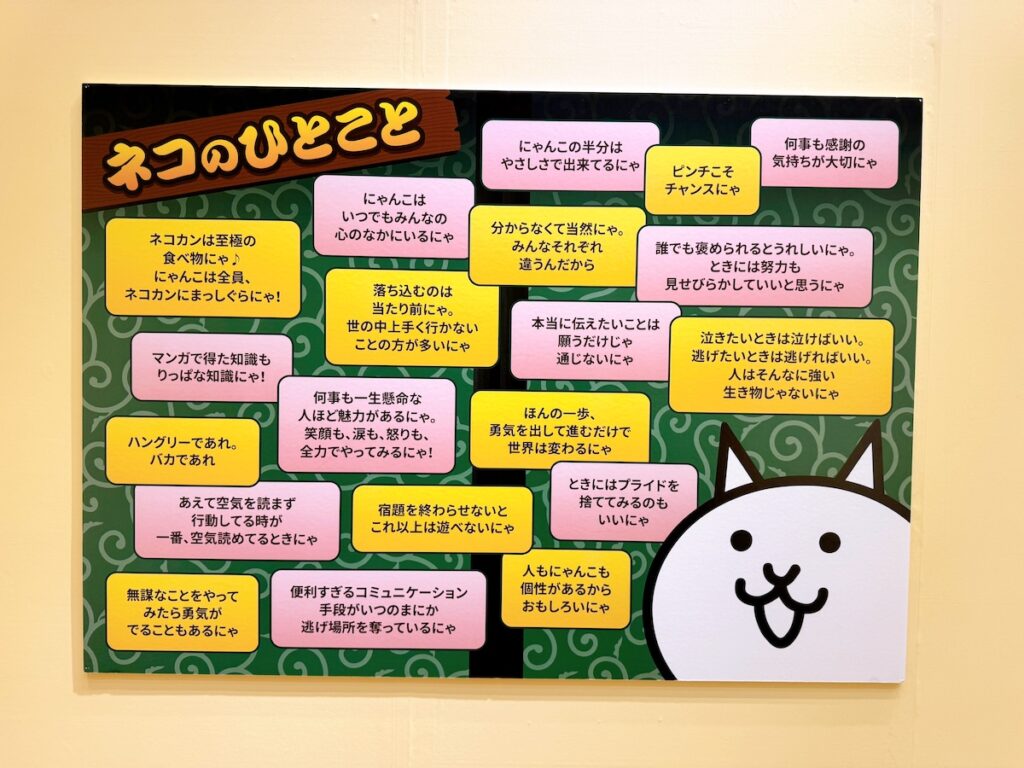 ネコのひとこと
にゃんこの半分は
やさしさで出来てるにゃ
ピンチこそ
チャンスにゃ
何事も感謝の
気持ちが大切にゃ
にゃんこは
いつでもみんなの
心のなかにいるにゃ
分からなくて当然にゃ。
みんなそれぞれ
違うんだから
ネコカンは至極の
食べ物にゃ♪
にゃんこは全員、
ネコカンにまっしぐらにゃ!
誰でも褒められるとうれしいにゃ。
ときには努力も
見せびらかしていいと思うにゃ
落ち込むのは
当たり前にゃ。
世の中上手く行かない
ことの方が多いにゃ
本当に伝えたいことは
願うだけじゃ
通じないにゃ
泣きたいときは泣けばいい。
逃げたいときは逃げればいい。
人はそんなに強い
生き物じゃないにゃ
マンガで得た知識も
りっぱな知識にゃ!
何事も一生懸命な
人ほど魅力があるにゃ。
笑顔も、涙も、怒りも、
全力でやってみるにゃ!
ほんの一歩、
勇気を出して進むだけで
世界は変わるにゃ
ハングリーであれ。
バカであれ
ときにはプライドを
捨ててみるのも
いいにゃ
あえて空気を読まず
行動してる時が
一番、空気読めてるときにゃ
宿題を終わらせないと
これ以上は遊べないにゃ
人もにゃんこも
個性があるから
おもしろいにゃ
無謀なことをやって
みたら勇気が
でることもあるにゃ
便利すぎるコミュニケーション
手段がいつのまにか
逃げ場所を奪っているにゃ